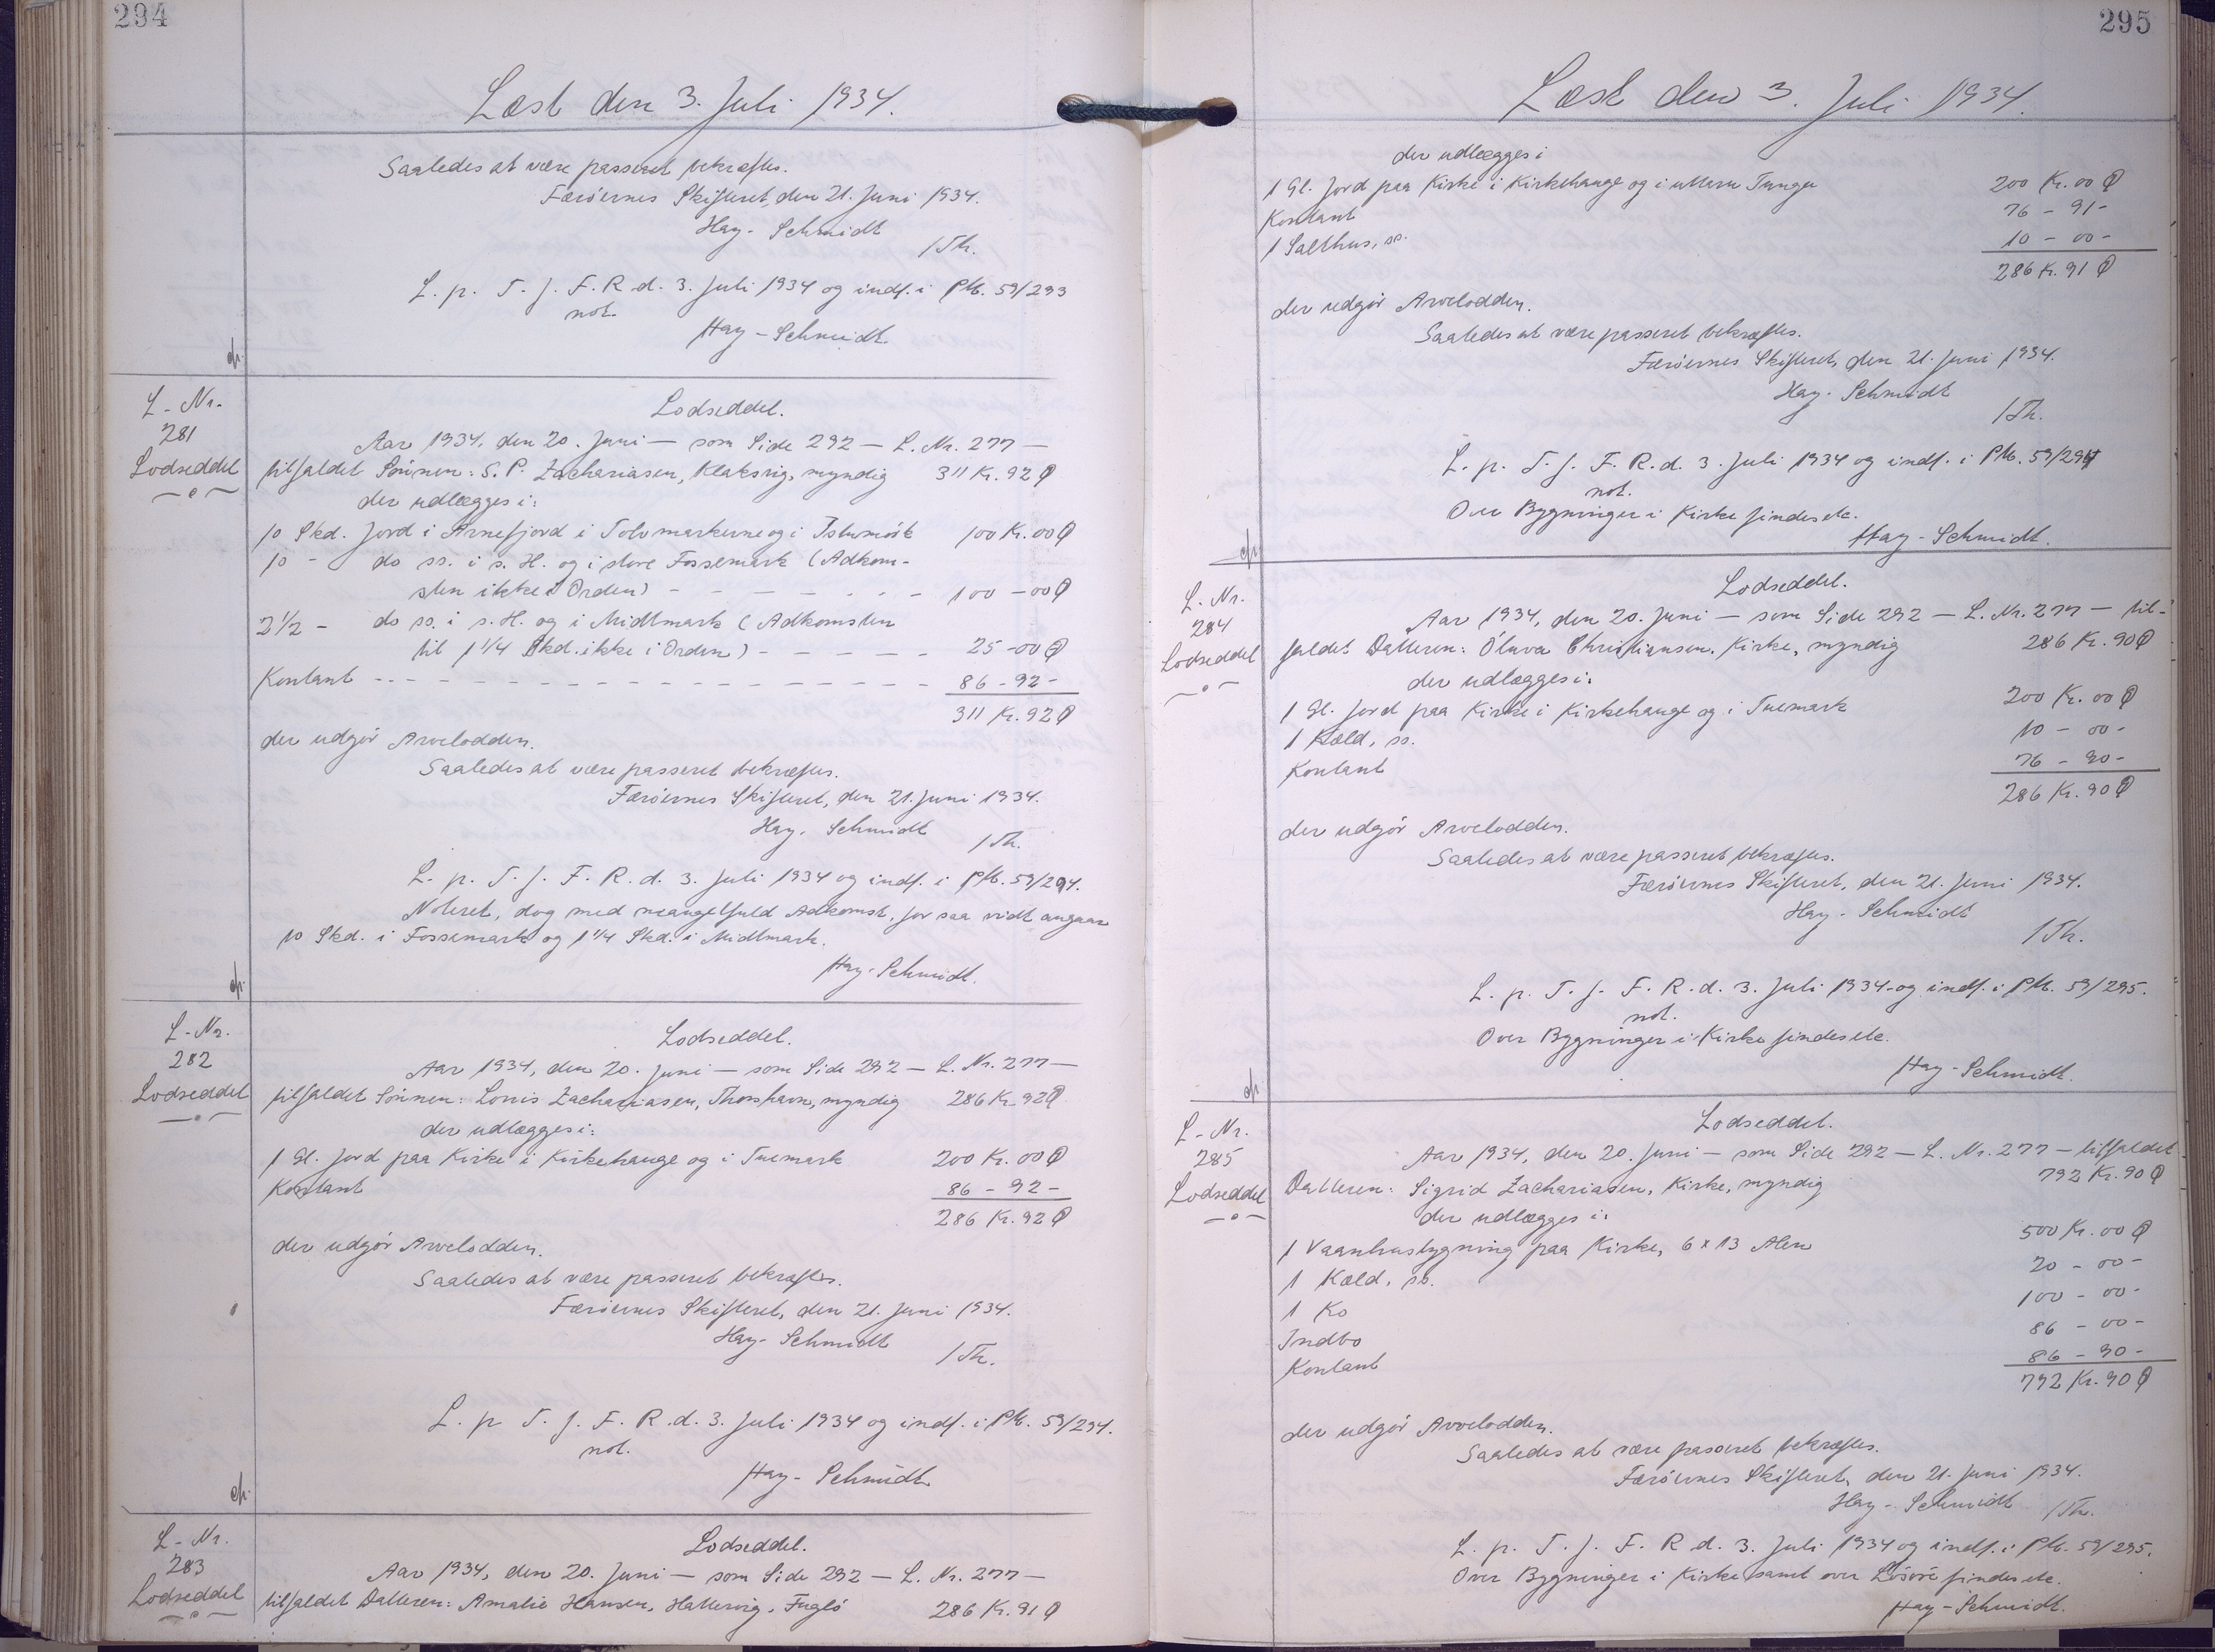 294
Læst den 3. Juli 1934.
Saaledes at være passeret bekræftes.
Færöernes Skifteret, den 21. Juni 1934.
Hay-Schmidt
/Th.
L. p. T. f. F. R. d. 3. Juli 1934 og indf. i PM. 59/293
not.
Hay-Schmidt
L-Nr.
281
Lodseddel
Lodseddel.
Aar 1934, den 20. Juni — som Side 292 — L. Nr. 277 —
tilfaldet Sönnen: S. P. Zachariasen, Klaksvig, myndig 311 Kr. 92 Ø
der udlægges i:
10 Skd. Jord i Arnefjord i Tolvmarkerne og i 100 Kr. 00 Ø
10 - do ss. i s. H. og i store Fossemark (Adkom-
sten ikke i Orden) - - - - - - - 100 - 00 Ø
2 1/2 - do ss. i s. H. og i Midtmark (Adkomsten
til 1 1/4 Skd. ikke i Orden) - - - - - 25 - 00 Ø
Kontant - - - - - - - - - - - 86 - 92 -
311 Kr. 92 Ø
der udgör Arvelodden.
Saaledes at være passeret bekræftes.
Færöernes Skifteret, den 21. Juni 1934.
Hay-Schmidt
/Th.
L. p. T. f. F. R. d. 3. Juli 1934 og indf. i PM. 59/294.
Noteret, dog med mangelfuld Adkomst, for saa vidt angaar
10 Skd. i Fossemark og 1 1/4 Skd. i Midtmark.
Hay-Schmidt.
L-Nr.
282
Lodseddel
Lodseddel.
Aar 1934, den 20. Juni — som Side 292 — L. Nr. 277 —
tilfaldet Sönnen: Louis Zachariasen, Thorshavn, myndig 286 Kr. 92 Ø
der udlægges i:
1 Gl. Jord paa Kirke i Kirkehauge og i Tuemark 200 Kr. 00 Ø
Kontant 86 - 92 -
286 Kr. 92 Ø
der udgör Arvelodden.
Saaledes at være passeret bekræftes.
Færöernes Skifteret, den 21. Juni 1934.
Hay-Schmidt
/Th.
L. p T. f. F. R. d. 3. Juli 1934 og indf. i PM. 59/294.
not.
Hay-Schmidt
L-Nr.
283
Lodseddel
Lodseddel.
Aar 1934, den 20. Juni — som Side 292 — L. Nr. 277 —
tilfaldet Datteren: Amalie Hansen, Hattervig, Fuglö 286 Kr. 91 Ø
295
Læst den 3. Juli 1934.
der udlægges i
1 Gl. Jord paa Kirke i Kirkehauge og i uttern Tunger 200 Kr. 00 Ø
Kontant 76 - 91 -
1 Salthus, ss. 10 - 00 -
286 Kr. 91 Ø
der udgör Arvelodden.
Saaledes at være passeret bekræftes.
Færöernes Skifteret, den 21. Juni 1934.
Hay-Schmidt
/Th.
L. p. T. f. F. R. d. 3. Juli 1934 og indf. i PM. 59/294
not.
Over Bygninger i Kirke findes etc.
Hay-Schmidt.
L-Nr.
284
Lodseddel
Lodseddel.
Aar 1934, den 20. Juni — som Side 292 — L. Nr. 277 — til-
faldet Datteren: Óluva Christiansen, Kirke, myndig 286 Kr. 90 Ø
der udlægges i:
1 Gl. Jord paa Kirke i Kirkehauge og i Tuemark 200 Kr. 00 Ø
1 Kæld, ss. 10 - 00 -
Kontant 76 - 90 -
286 Kr. 90 Ø
der udgör Arvelodden.
Saaledes at være passeret bekræftes.
Færöernes Skifteret, den 21. Juni 1934.
Hay-Schmidt
/Th.
L. p. T. f. F. R. d. 3. Juli 1934 og indf. i PM. 59/295.
not.
Over Bygninger i Kirke findes etc.
Hay-Schmidt.
L-Nr.
285
Lodseddel
Lodseddel.
Aar 1934, den 20. Juni — som Side 292 — L. Nr. 277 — tilfaldet
Datteren: Sigrid Zachariasen, Kirke, myndig 792 Kr. 90 Ø
der udlægges i:
1 Vaanhusbygning paa Kirke, 6 x 13 Alen 500 Kr. 00 Ø
1 Kæld, ss. 20 - 00 -
1 Ko 100 - 00 -
Indbo 86 - 00 -
Kontant 86 - 90 -
792 Kr. 90 Ø
der udgör Arvelodden.
Saaledes at være passeret bekræftes.
Færöernes Skifteret, den 21. Juni 1934.
Hay-Schmidt
/Th.
L. p. T. f. F. R d. 3. Juli 1934 og indf. i PM. 59/295.
Over Bygninger i Kirke samt over Lösöre findes etc.
Hay-Schmidt.